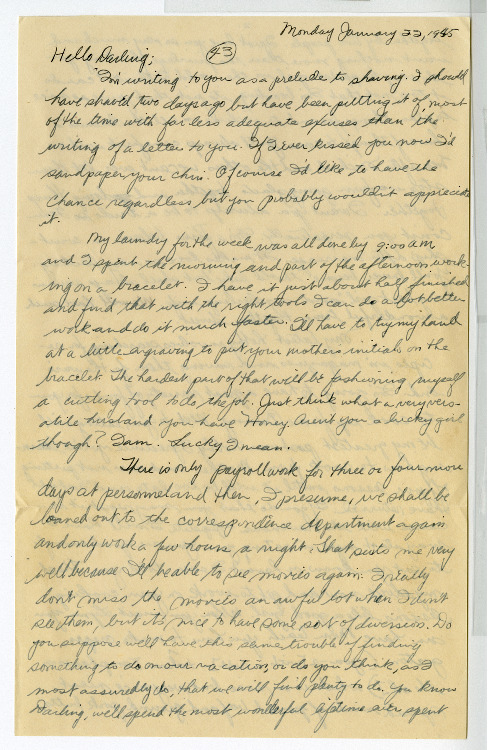 Monday January 22, 1945
43
Hello Darling;
I'm writing to you as a prelude to shaving. I should
have shaved two days ago but have been putting it off, most
of the time with far less adequate excuses than the
writing of a letter to you. If I ever kissed you now I'd
sandpaper your chin. Of course I'd like to have the
chance regardless but you probably wouldn't appreciate
it.
My laundry for the week was all done by 9:00 am
and I spent the morning and part of the afternoon work-
ing on a bracelet. I have it just about half finished
and find that with the right tools I can do a lot better
work and do it much faster. I'll have to try my hand
at a little engraving to put your mothers initials on the
bracelet. The hardest part of that will be fashioning myself
a cutting tool to do the job. Just think what a very vers-
atile husband you have Honey. Aren't you a lucky girl
though? Dam. Lucky I mean.
There is only payroll work for three or four more
days at personnel and then, I presume, we shall be
loaned out to the correspondence department again
and only work a few hours a night. That suits me very
well because I'll be able to see movies again. I really
don't miss the movies an awful lot when I don't
see them, but it's nice to have some sort of diversion. Do
you suppose we'll have this same trouble of finding
something to do on our vacation, or do you think, as I
most assuredly do, that we will find plenty to do. You know
Darling, we'll spend the most wonderful lifetime ever spent